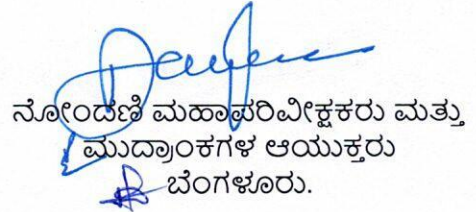 ನೋಂದಣಿ ಮಹಾಪರಿವೀಕ್ಷಕರು ಮತ್ತು
ಮುದ್ರಾಂಕಗಳ ಆಯುಕ್ತರು
ಬೆಂಗಳೂರು.